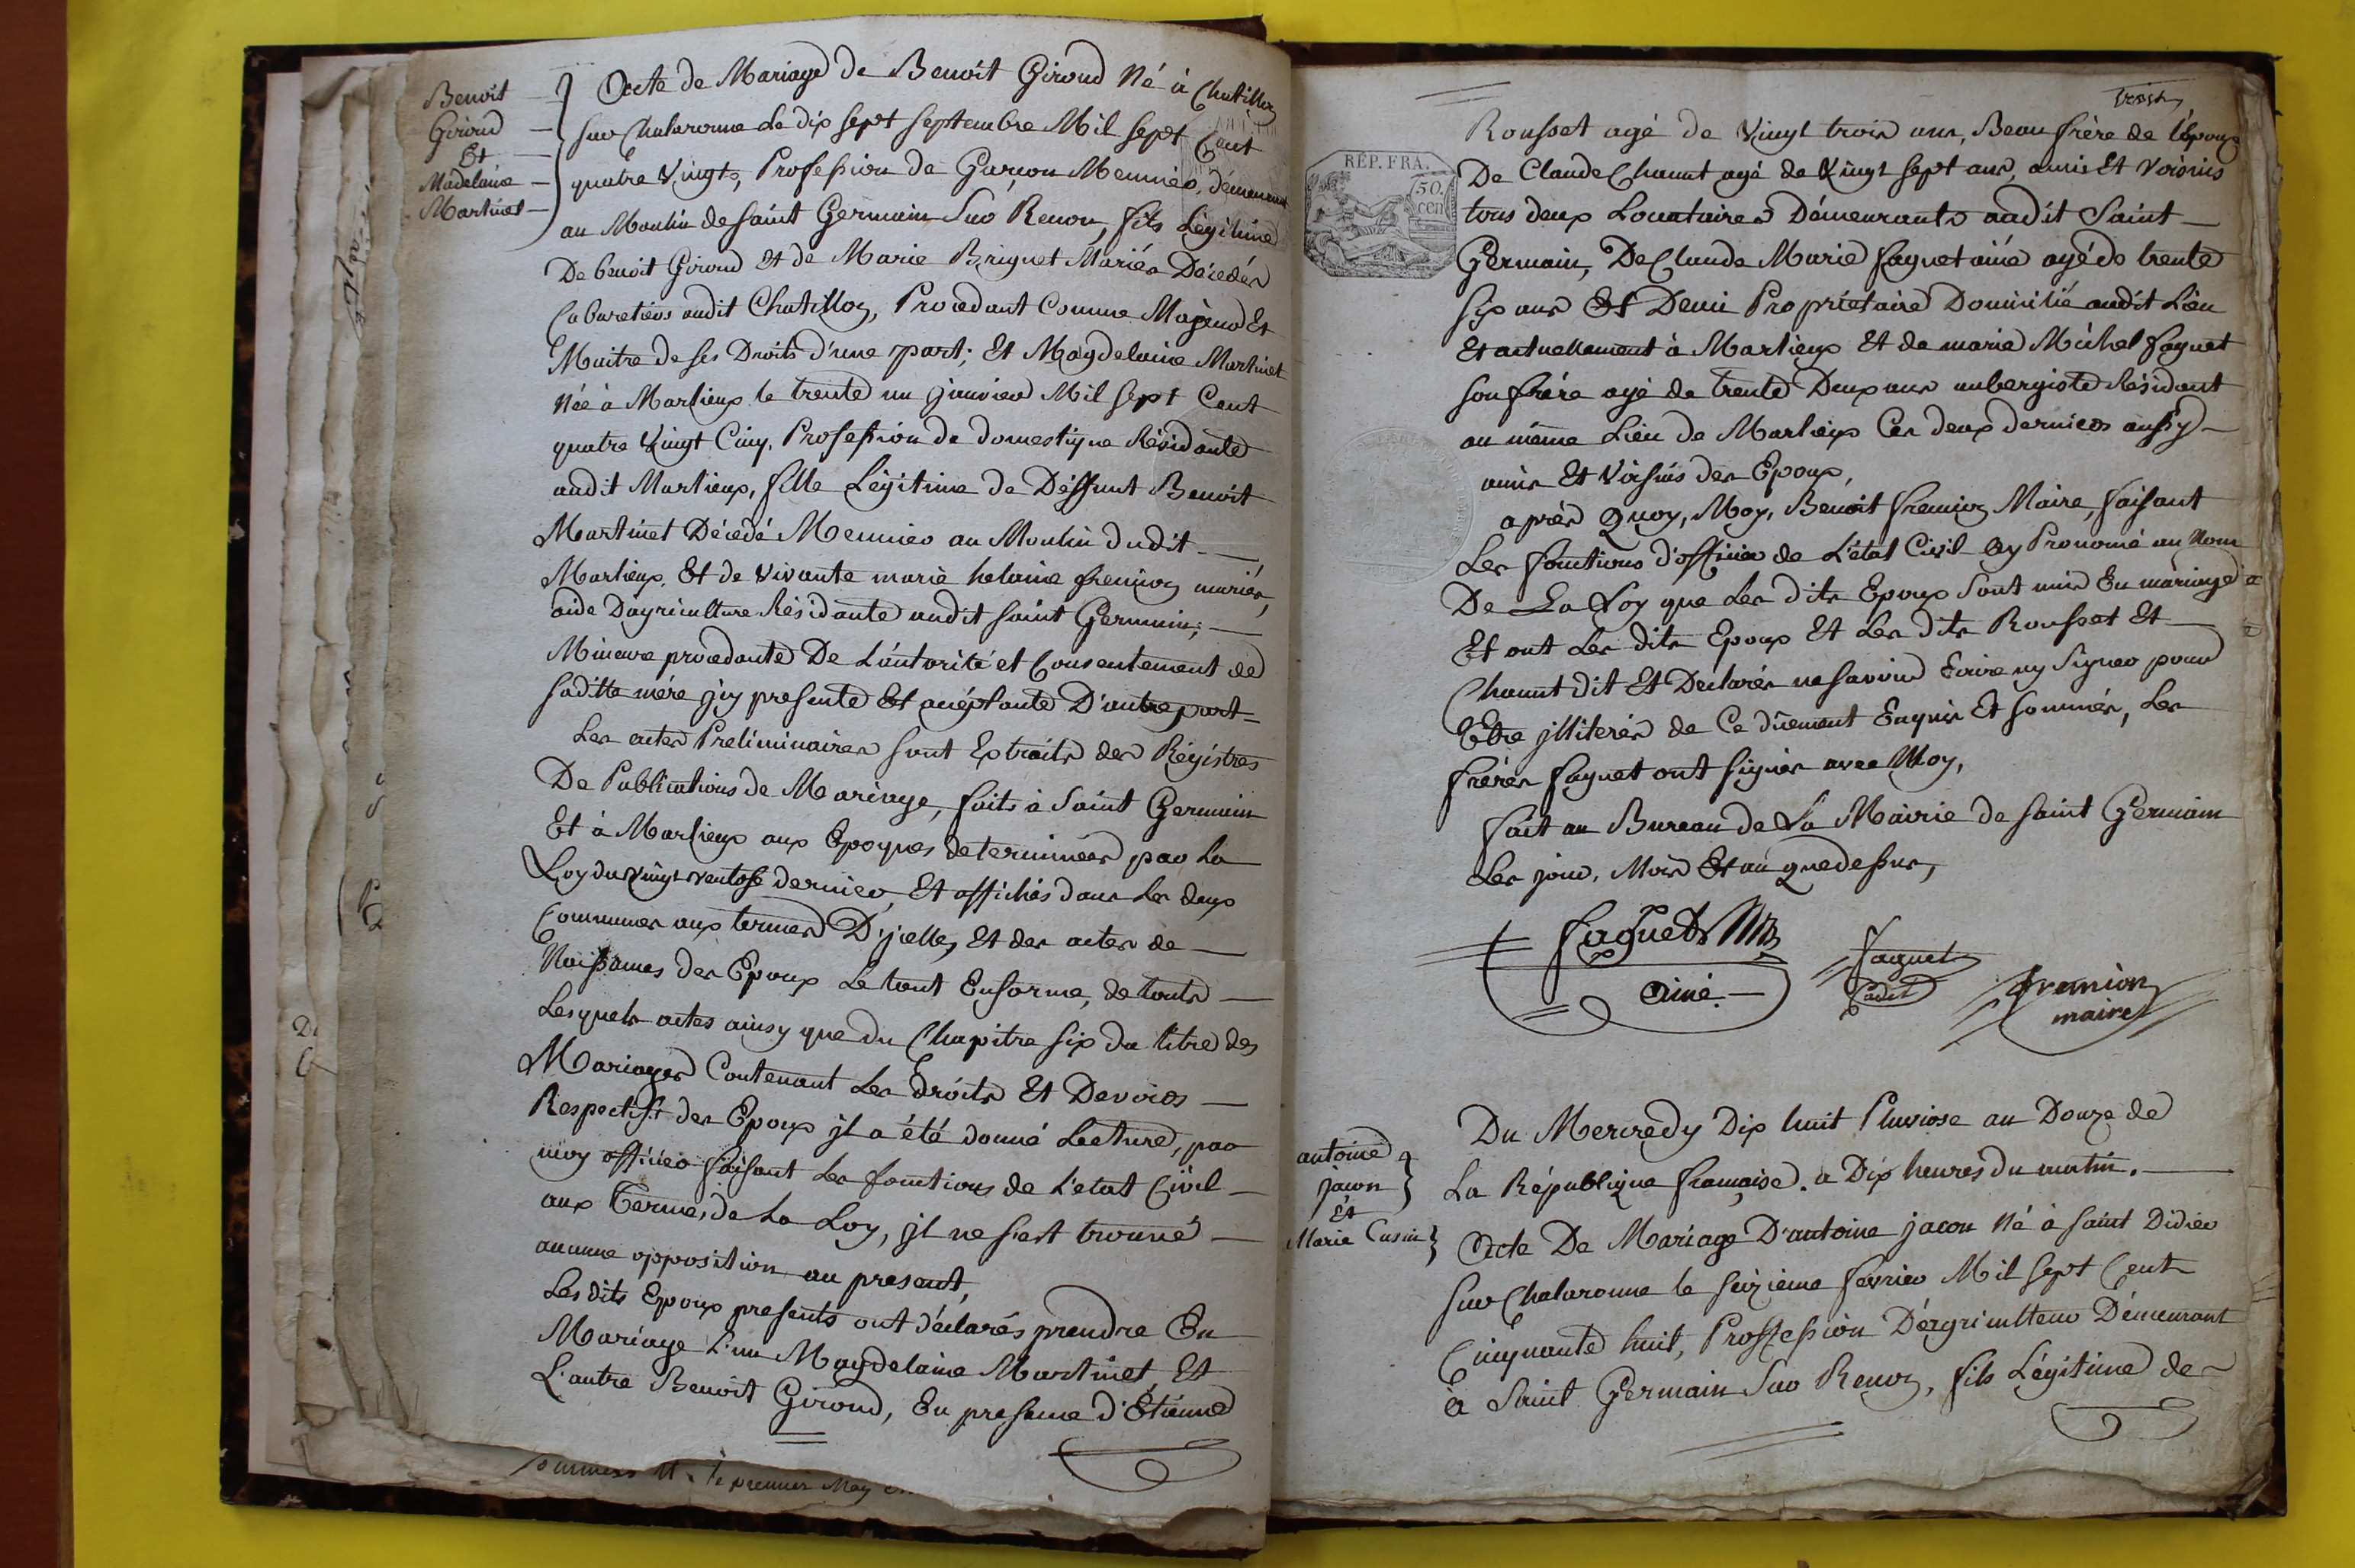 Benoit
Giroud
Et
Madelaine
Martinet
Acte de Mariage de Benoit Giroud Né à Chatillon
sur Chalaronne le dix sept septembre Mil sept Cent
quatre Vingts, Profession de Garçon Meunier, démeurant
au Moulin de saint Germain Sur Renon, fils Légitime
De benoit Giroud Et de Marie Briguet Mariés Décédés
Cabaretiers audit Chatillon, Procedant Comme Majeur Et
Maitre de ses Droits d'une part; Et Magdelaine Martinet
Née à Marlieux le trente un janvier Mil sept Cent
quatre Vingt Cinq, Profession de domestique Résidante
audit Marlieux, fille Légitime de Déffunt Benoit
Martinet Décédé Meunier au Moulin dudit
Marlieux, Et de Vivante marie helaine fremion mariés,
aide D'agriculture Résidante audit saint Germain;
Mineure procedante De L'autorité et Consentement de
saditte mére jcy presente Et acéptante D'autre part
Les actes Preliminaires sont Extraits des Régistres
De Publications de Mariage, faits à Saint Germain
Et à Marlieux aux Epoques determinées par La
Loy du vingt ventose dernier, Et affichés dans les deux
Communes aux termes D'jcelle, Et des actes de
Naissances des Epoux Le tout Enforme, de touts
Lesquels actes ainsy que du Chapitre six du titre des
Mariages Contenant Les droits Et Devoirs
Respectifs des Epoux jl a été donné Lecture, par
moy officier faisant les fonctions de L'etat Civil
aux Termes de La Loy, jl ne s'est trouvé
aucune opposition au present,
Les dits Epoux presents ont déclarés prendre En
Mariage L'un Magdelaine Martinet, Et
L'autre Benoit Giroud, En presence d'Etienne
le premier May
trois
RÉP. FRA.
50.
cen
Rousset agé de Vingt trois ans, Beau frère de l'époux
De Claude Chanut agé de Vingt sept ans, amis Et Voisins
tous deux Locataires Démeurants audit Saint
Germain, De Claude Marie faguet ainé agé de trente
six ans Et Demi Propriétaire Domicilié audit Lieu
Et actuellement à Marlieux Et de marie Michel faguet
son frére agé de trente Deux ans aubergiste Résidant
au même Lieu de Marlieux Ces deux derniers aussy
amis Et Voisins des Epoux,
après Quoy, Moy, Benoit fremion Maire, faisant
Les fonctions d'officier de L'état Civil ay Pronomé au Nom
De La Loy que Les dits Epoux sont unis En mariage
Et ont Les dits Epoux Et Les dits Rousset Et
Chanut dit Et Declarés ne savoir Ecrire ny Signer pour
Etre jlliterés de Ce dûement Enquis Et sommés, Les
fréres faguet ont signés avec Moy,
fait au Bureau de La Mairie de saint Germain
Les jour, Mois Et an que dessus,
faguet
ainé
faguet
cadet
fremion
maire
Du Mercredy Dix huit Pluviose an Douze de
La République française. a Dix heures du matin.
antoine
jacon
Et
Marie Cusin
Acte De Mariage D'antoine jacon Né à saint Didier
sur Chalaronne le seizieme fevrier Mil sept Cent
Cinquante huit, Proffession D'agriculteur Démeurant
à Saint Germain Sur Renon, fils Légitime de